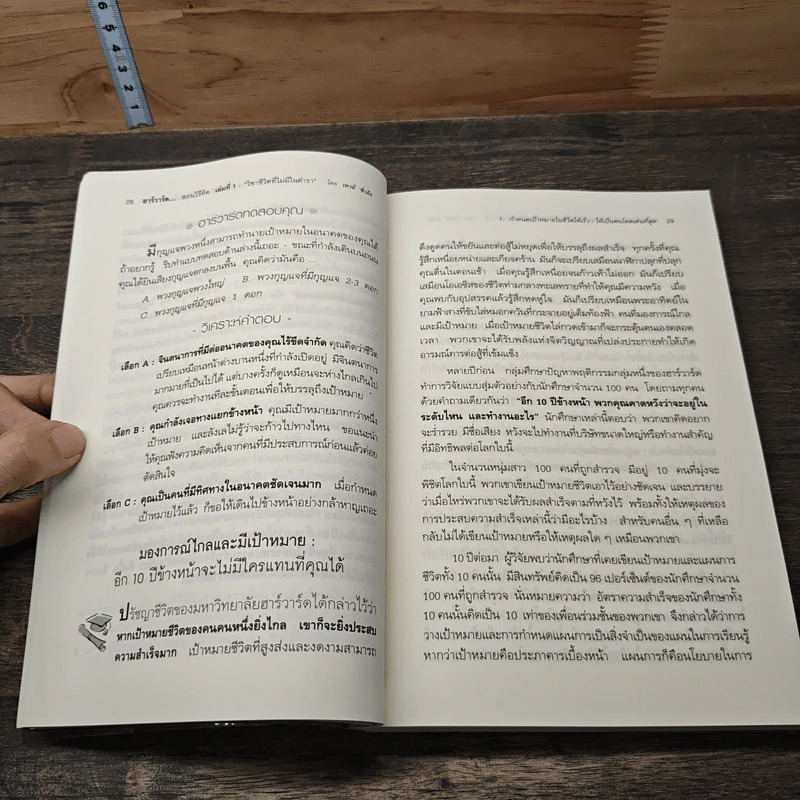 6
5
4
3
2
1
28 ฮาร์วาร์ด... สอนวิธีคิด เล่มที่ 1 : "วิชาชีวิตที่ไม่มีในตำรา" โดย
ฮาร์วาร์ดทดสอบคุณ
มีกุญแจพวงหนึ่งสามารถทำนายเป้าหมายในอนาคตของคุณได้
ถ้าอยากรู้ รีบทำแบบทดสอบด้านล่างนี้เถอะ - ขณะที่กำลังเดินบนถนน
คุณได้ยินเสียงกุญแจตกลงบนพื้น คุณคิดว่ามันคือ ...
A. พวงกุญแจพวงใหญ่ B. พวงกุญแจที่มีกุญแจ 2-3 ดอก
C. พวงกุญแจที่มีกุญแจ 1 ดอก
- วิเคราะห์คำตอบ -
เลือก A : จินตนาการที่มีต่ออนาคตของคุณไร้ขีดจำกัด คุณคิดว่าชีวิต
เปรียบเหมือนหน้าต่างบานหนึ่งที่กำลังเปิดอยู่ มีจินตนาการ
มากมายที่เป็นไปได้ แต่บางครั้งก็ดูเหมือนจะห่างไกลเกินไป
คุณควรจะทำงานทีละขั้นตอนเพื่อให้บรรลุถึงเป้าหมาย
เลือก B : คุณกำลังเจอทางแยกข้างหน้า คุณมีเป้าหมายมากกว่าหนึ่ง
เป้าหมาย และลังเลไม่รู้ว่าจะก้าวไปทางไหน ขอแนะนำ
ให้คุณฟังความคิดเห็นจากคนที่มีประสบการณ์ก่อนแล้วค่อย
ตัดสินใจ
เลือก C : คุณเป็นคนที่มีทิศทางในอนาคตชัดเจนมาก เมื่อกำหนด
เป้าหมายไว้แล้ว ก็ขอให้เดินไปข้างหน้าอย่างกล้าหาญเถอะ
มองการณ์ไกลและมีเป้าหมาย :
อีก 10 ปีข้างหน้าจะไม่มีใครแทนที่คุณได้
ปรัชญาชีวิตของมหาวิทยาลัยฮาร์วาร์ดได้กล่าวไว้ว่า
หากเป้าหมายชีวิตของคนคนหนึ่งยิ่งไกล เขาก็จะยิ่งประสบ
ความสำเร็จมาก เป้าหมายชีวิตที่สูงส่งและงดงามสามารถ
1 : กำหนดเป้าหมายในชีวิตให้เร็ว : ให้เป็นคนโดดเด่นที่สุด 29
ดึงดูดคนให้ขยันและต่อสู้ไม่หยุดเพื่อให้บรรลุถึงผลสำเร็จ ทุกครั้งที่คุณ
รู้สึกเหนื่อยหน่ายและเกียจคร้าน มันก็จะเปรียบเสมือนนาฬิกาปลุกที่ปลุก
คุณตื่นในตอนเช้า เมื่อคุณรู้สึกเหนื่อยจนก้าวเท้าไม่ออก มันก็เปรียบ
เสมือนโอเอซิสของชีวิตท่ามกลางทะเลทรายที่ทำให้คุณมีความหวัง เมื่อ
คุณพบกับอุปสรรคแล้วรู้สึกหดหู่ใจ มันก็เปรียบเหมือนพระอาทิตย์ใน
ยามฟ้าสางที่ขับไล่หมอกควันที่กระจายอยู่เต็มท้องฟ้า คนที่มองการณ์ไกล
และมีเป้าหมาย เมื่อเป้าหมายชีวิตไล่กวดเข้ามาก็จะกระตุ้นตนเองตลอด
เวลา พวกเขาจะได้รับพลังแห่งจิตวิญญาณที่เปล่งประกายทำให้เกิด
อารมณ์การต่อสู้ที่เข้มแข็ง
หลายปีก่อน กลุ่มศึกษาปัญหาพฤติกรรมกลุ่มหนึ่งของฮาร์วาร์ด
ทำการวิจัยแบบสุ่มตัวอย่างกับนักศึกษาจำนวน 100 คน โดยถามทุกคน
ด้วยคำถามเดียวกันว่า "อีก 10 ปีข้างหน้า พวกคุณคาดหวังว่าจะอยู่ใน
ระดับไหน และทำงานอะไร" นักศึกษาเหล่านี้ตอบว่า พวกเขาคิดอยาก
จะร่ำรวย มีชื่อเสียง หวังจะไปทำงานที่บริษัทขนาดใหญ่หรือทำงานสำคัญ
ที่มีอิทธิพลต่อโลกใบนี้
ในจำนวนหนุ่มสาว 100 คนที่ถูกสำรวจ มีอยู่ 10 คนที่มุ่งจะ
พิชิตโลกใบนี้ พวกเขาเขียนเป้าหมายชีวิตเอาไว้อย่างชัดเจน และบรรยาย
ว่าเมื่อไหร่พวกเขาจะได้รับผลสำเร็จตามที่หวังไว้ พร้อมทั้งให้เหตุผลของ
การประสบความสำเร็จเหล่านี้ว่ามีอะไรบ้าง สำหรับคนอื่น ๆ ที่เหลือ
กลับไม่ได้เขียนเป้าหมายหรือให้เหตุผลใด ๆ เหมือนพวกเขา
10 ปีต่อมา ผู้วิจัยพบว่านักศึกษาที่เคยเขียนเป้าหมายและแผนการ
ชีวิตทั้ง 10 คนนั้น มีสินทรัพย์คิดเป็น 96 เปอร์เซ็นต์ของนักศึกษาจำนวน
100 คนที่ถูกสำรวจ นั่นหมายความว่า อัตราความสำเร็จของนักศึกษาทั้ง
10 คนนั้นคิดเป็น 10 เท่าของเพื่อนร่วมชั้นของพวกเขา จึงกล่าวได้ว่าการ
วางเป้าหมายและการกำหนดแผนการเป็นสิ่งจำเป็นของแผนในการเรียนรู้
หากว่าเป้าหมายคือประภาคารเบื้องหน้า แผนการก็คือนโยบายในการ